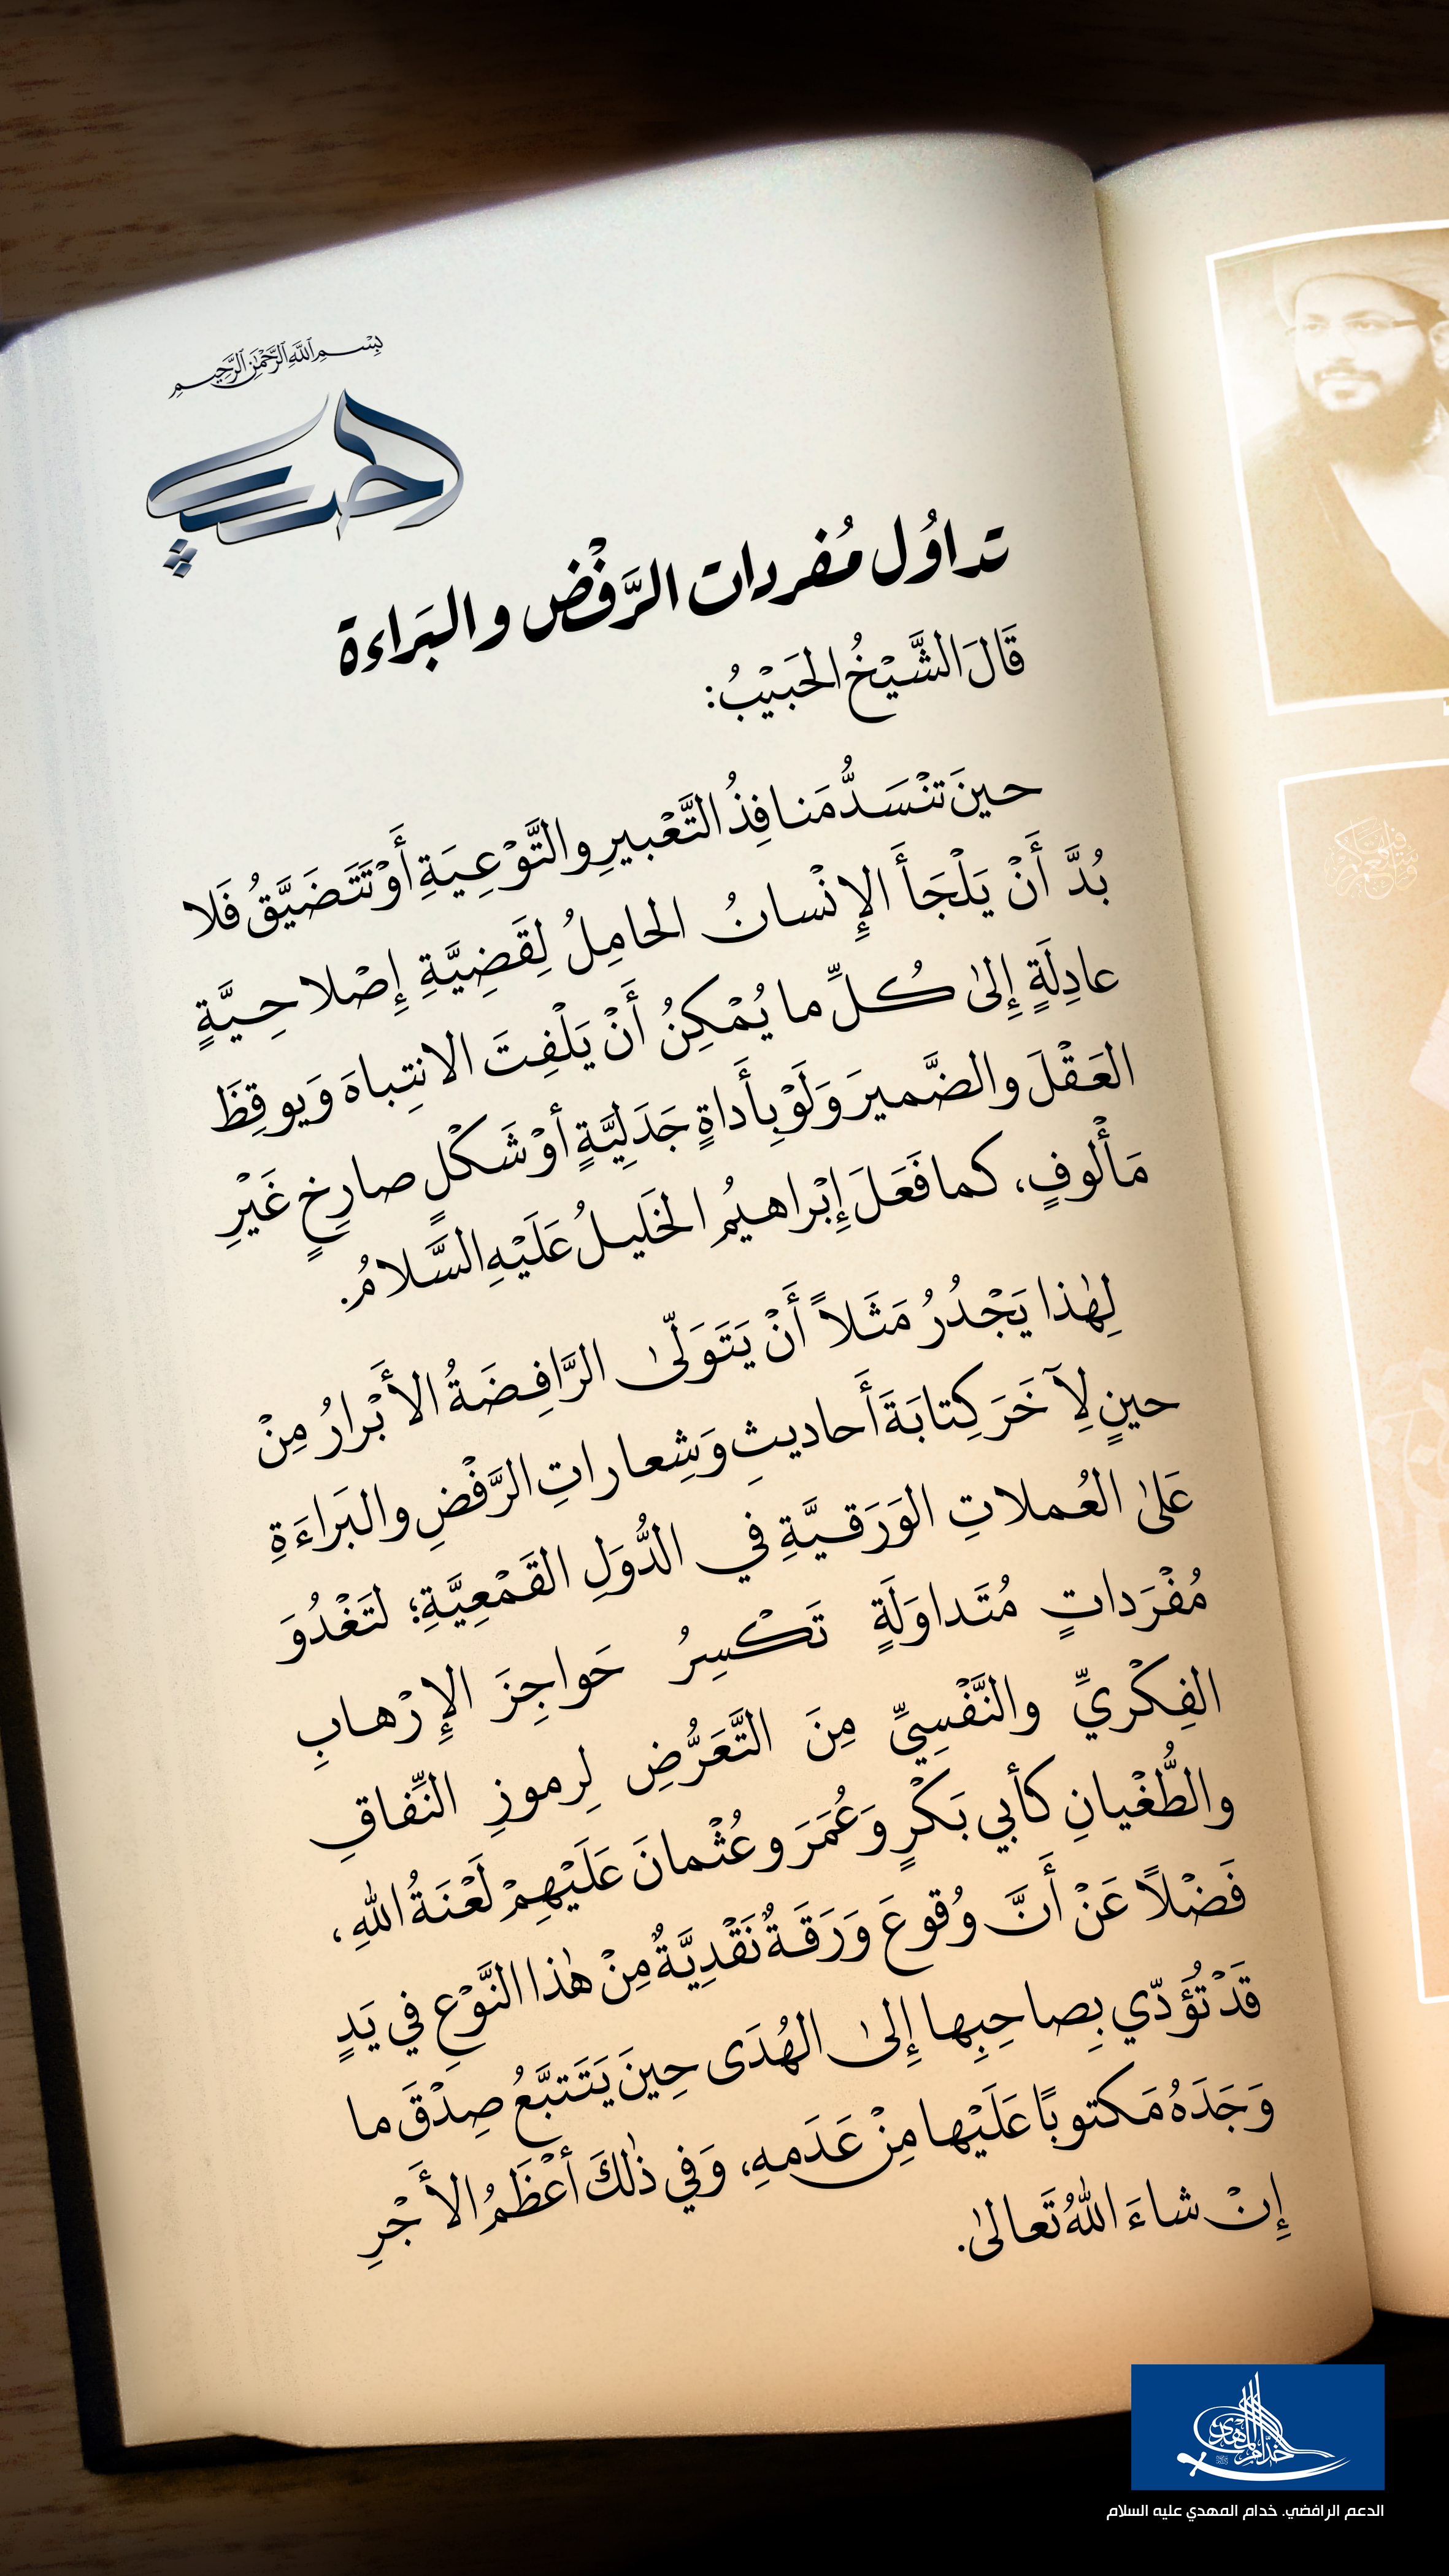 بِسْمِ اللَّهِ الرَّحْمَٰنِ الرَّحِيمِ
الحبيب
تداوُل مُفردات الرَّفْض و البَراءة
قَالَ الشَّيْخُ الحَبَيْبُ:
حينَ تنْسَدُّ مَنافِذُ التَّعْبيرِ والتَّوْعِيَةِ أَوْ تَتَضَيَّقُ فَلا
بُدَّ أَنْ يَلْجَأَ الإِنْسانُ الحامِلُ لِقَضِيَّةِ إِصْلاحِيَّةٍ
عادِلَةٍ إِلىٰ كُلِّ ما يُمْكِنُ أَنْ يَلْفِتَ الانتِباهَ وَيوقِظَ
العَقْلَ والضَّميرَ وَلَوْ بِأَداةٍ جَدَلِيَّةٍ أوْ شَكْلٍ صارِخٍ غَيْرِ
مَأْلوفٍ، كما فَعَلَ إِبْراهيمُ الخَليلُ عَلَيْهِ السَّلامُ.
لِهٰذا يَجْدُرُ مَثَلاً أَنْ يَتَوَلّىٰ الرَّافِضَةُ الأَبْرارُ مِنْ
حينٍ لِآخَرَ كِتابَةَ أَحاديثِ وَشِعاراتِ الرَّفْضِ والبَراءَةِ
عَلىٰ العُملاتِ الوَرَقيَّةِ في الدُّوَلِ القَمْعِيَّةِ؛ لتَغْدُوَ
مُفْرَداتٍ مُتَداوَلَةٍ تَكْسِرُ حَواجِزَ الإِرْهابِ
الفِكْريِّ والنَّفْسِيِّ مِنَ التَّعَرُّضِ لِرموزِ النِّفاقِ
والطُّغْيانِ كأبي بَكْرٍ وَعُمَرَ وعُثْمانَ عَلَيْهِمْ لَعْنَةُ اللهِ،
فَضْلاً عَنْ أَنَّ وُقوعَ وَرَقَةٌ نَقْدِيَّةٌ مِنْ هٰذا النَّوْعِ في يَدٍ
قَدْ تُؤَدّي بِصاحِبِها إِلىٰ الهُدَى حِينَ يَتَتبَّعُ صِدْقَ ما
وَجَدَهُ مَكتوبًا عَلَيْها مِنْ عَدَمهِ، وَفي ذٰلكَ أعْظَمُ الأَجْرِ
إِنْ شاءَ اللهُ تَعالىٰ.
خدّام المهدي
الدعم الرافضي. خدام المهدي عليه السلام